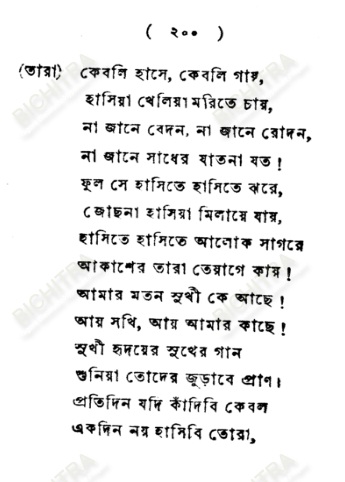 ( ২০০ )
(তারা) কেবলি হাসে, কেবলি গায়,
হাসিয়া খেলিয়া মরিতে চায়,
না জানে বেদন, না জানে রোদন,
না জানে সাধের যাতনা যত !
ফুল সে হাসিতে হাসিতে ঝরে,
জোছনা হাসিয়া মিলায়ে যায়,
হাসিতে হাসিতে আলোক সাগরে
আকাশের তারা তেয়াগে কায় !
আমার মতন সুখী কে আছে !
আয় সখি, আয় আমার কাছে !
সুখী হৃদয়ের সুখের গান
শুনিয়া তোদের জুড়াবে প্রাণ।
প্রতিদিন যদি কাঁদিবি কেবল
একদিন নয় হাসিবি তোরা,
BICHITRA
BICHITRA
BICHITRA
BICHITRA